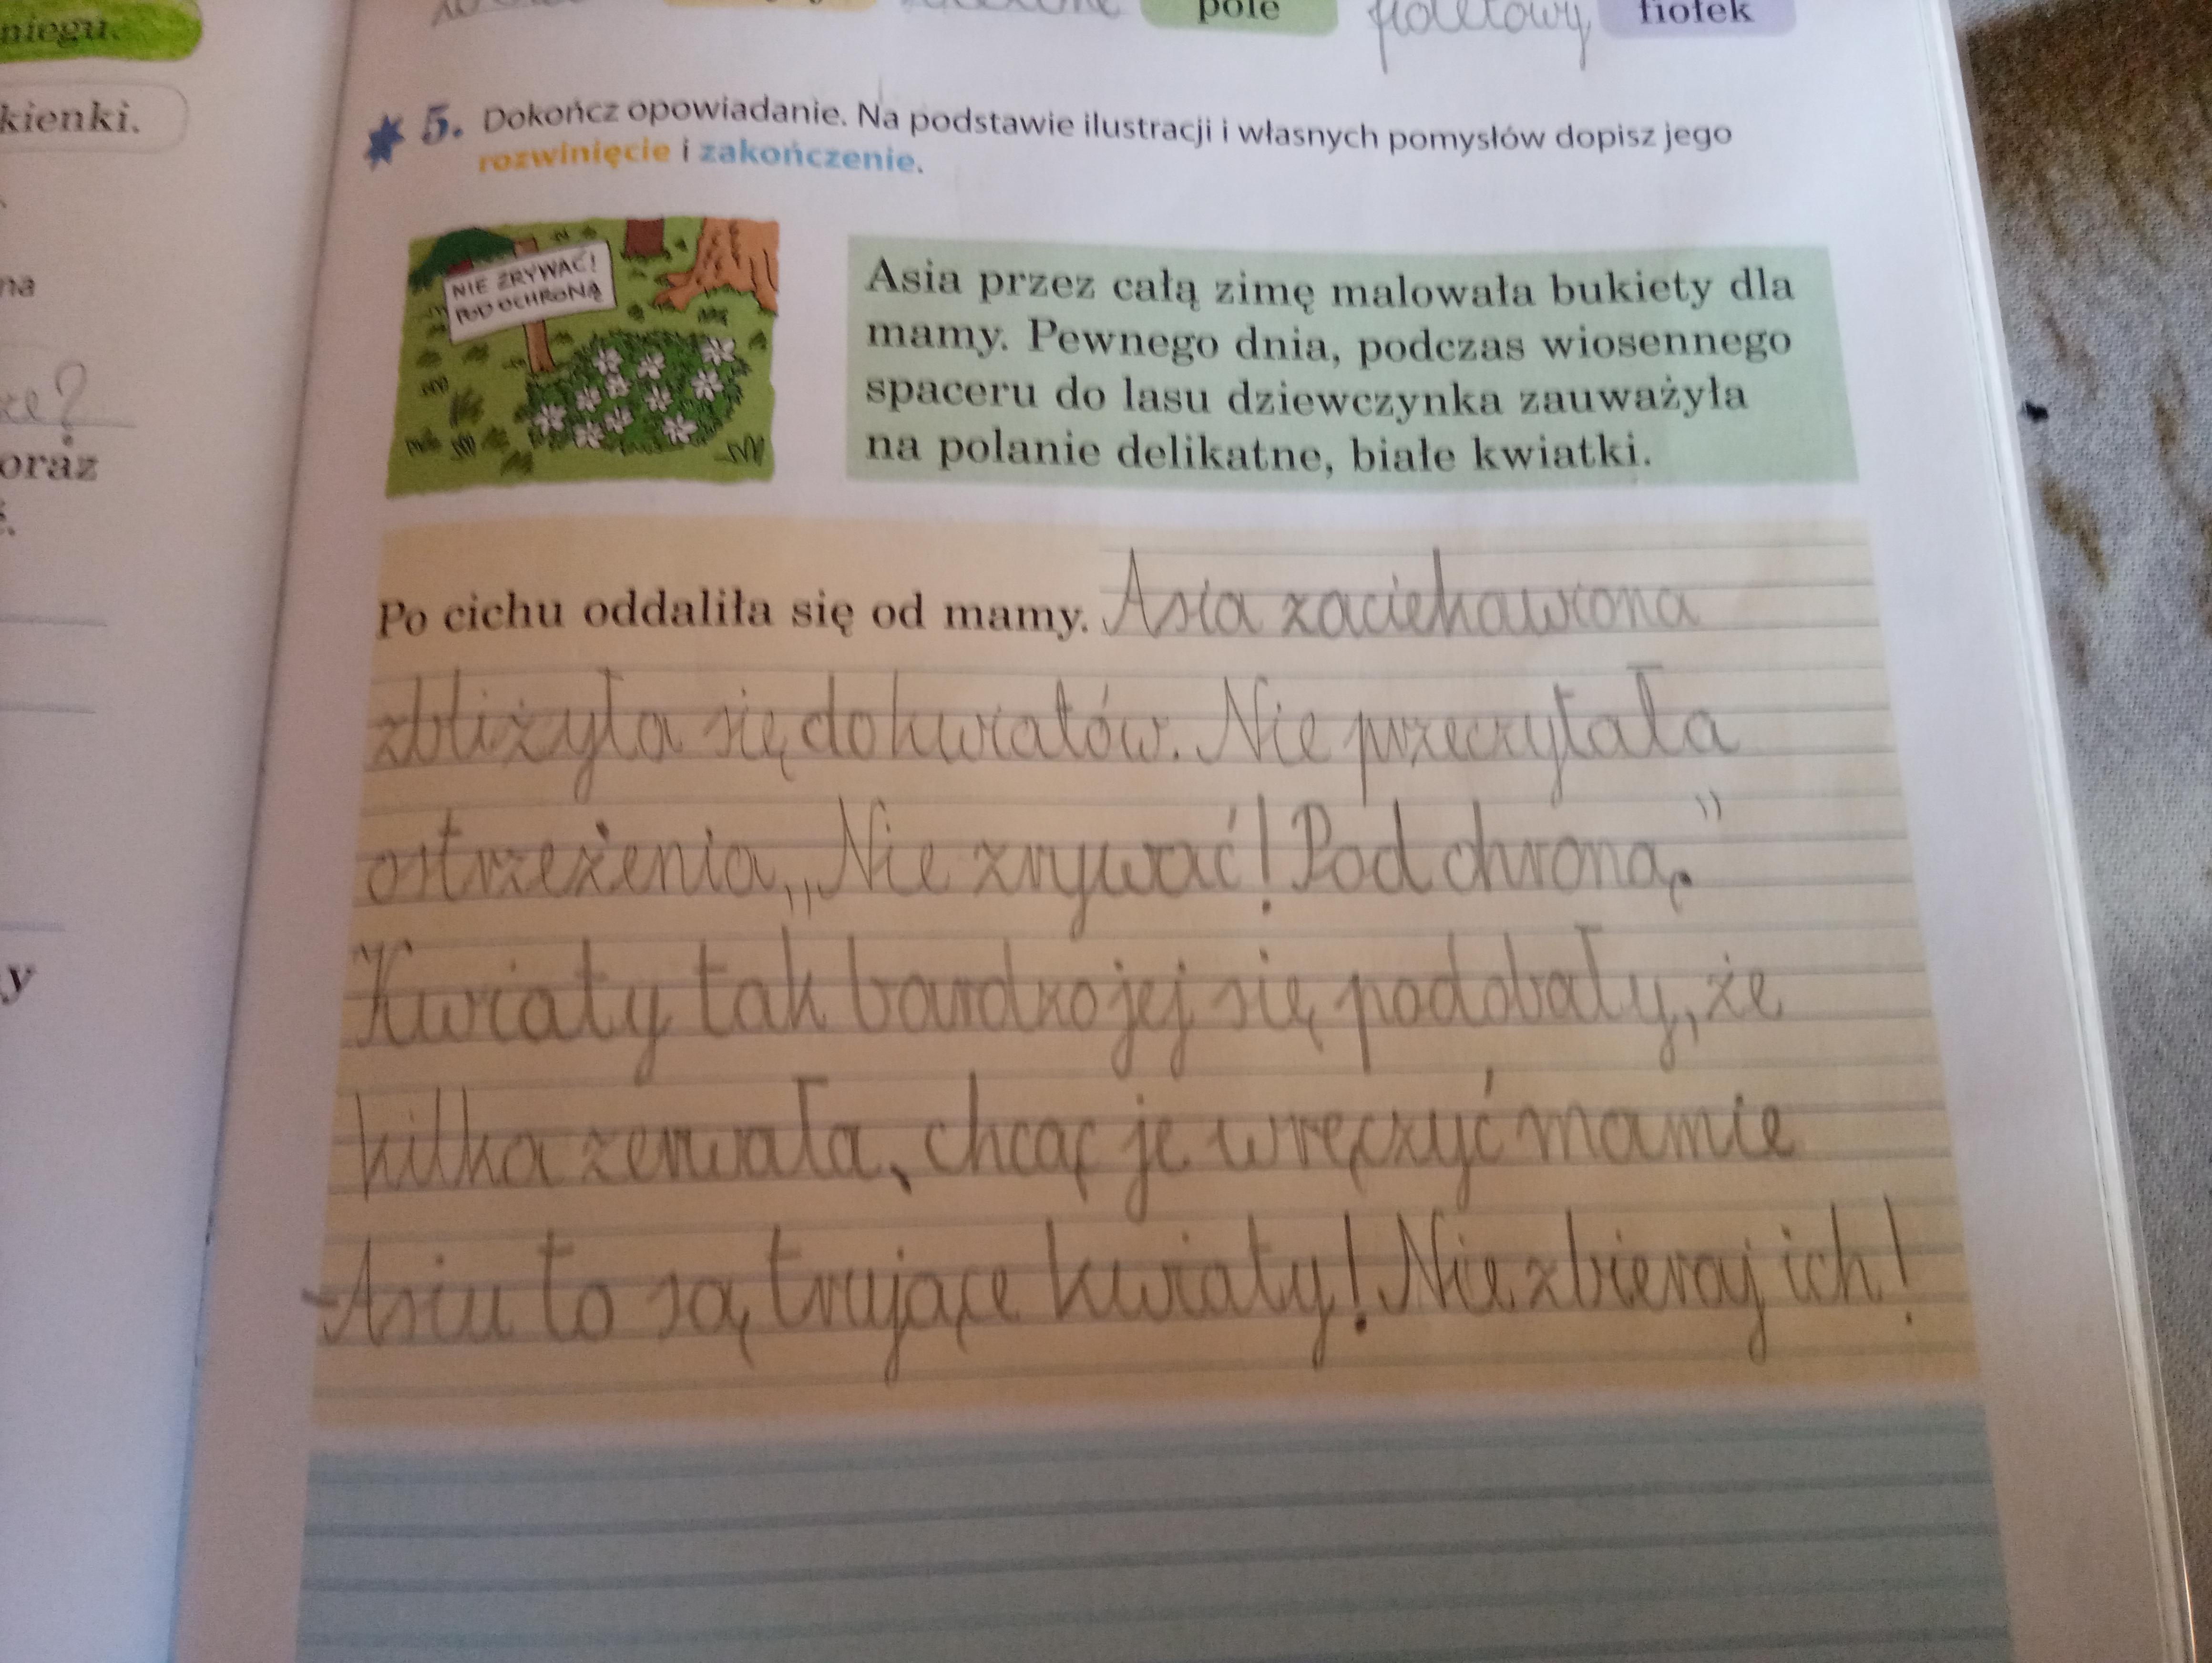 niegu.
pole
fioletowy
fiołek
kienki.
na
ze?
oraz
y
5. Dokończ opowiadanie. Na podstawie ilustracji i własnych pomysłów dopisz jego
rozwinięcie i zakończenie.
NIE ZRYWAĆ!
POD OCHRONĄ
Asia przez całą zimę malowała bukiety dla
mamy. Pewnego dnia, podczas wiosennego
spaceru do lasu dziewczynka zauważyła
na polanie delikatne, białe kwiatki.
Po cichu oddaliła się od mamy. Asia zaciekawiona
zbliżyła się do kwiatów. Nie przeczytała
ostrzeżenia,,,Nie zrywać! Pod chroną."
Kwiaty tak bardzo jej się podobały, że
kilka zerwała, chcąc je wręczyć mamie
-Asiu to są trujące kwiaty! Nie zbieraj ich!